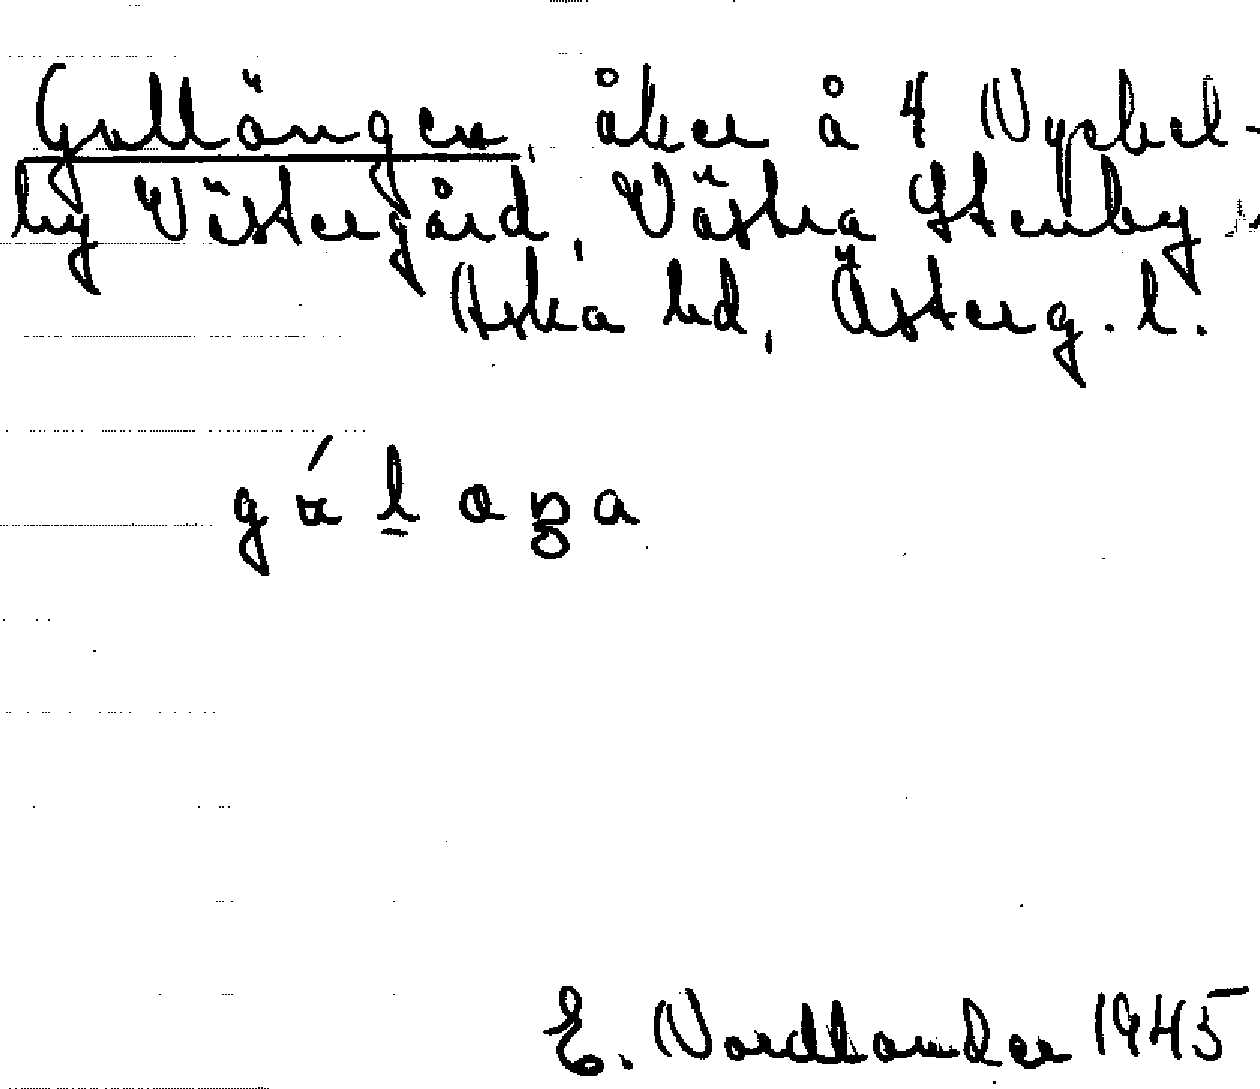 Gallängen, åker å 4 Nyckel-
by Västergård, Västra Stenby s
Aska hd, Österg. l.
E. Nordlander 1945